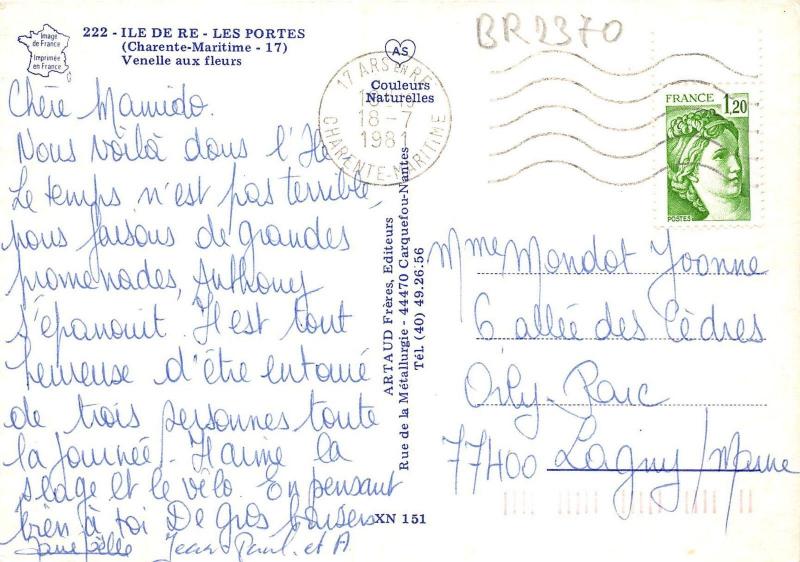 BR2370
Image
de France
Imprimée
en France
222 - ILE DE RE - LES PORTES
(Charente-Maritime - 17)
Venelle aux fleurs
AS
Couleurs
Naturelles
17 ARS EN RE
18-7
1981
CHARENTE-MARITIME
FRANCE 1,20
POSTES
Chère Mamido.
Nous voilà dans l'Ile
Le temps n'est pas terrible,
nous faisons de grandes
promenades, Anthony
s'épanouit. Il est tout
heureuse d'être entouré
de trois personnes toute
la journée. Il aime la
plage et le vélo. En pensant
bien à toi De gros baisers
Jean Paul. et A
ARTAUD Frères, Editeurs
Rue de la Métallurgie - 44470 Carquefou-Nantes
Tél. (40) 49.26.56
XN 151
Mme Mondot Yvonne
6 allée des Cèdres
77400 Lagny/Marne